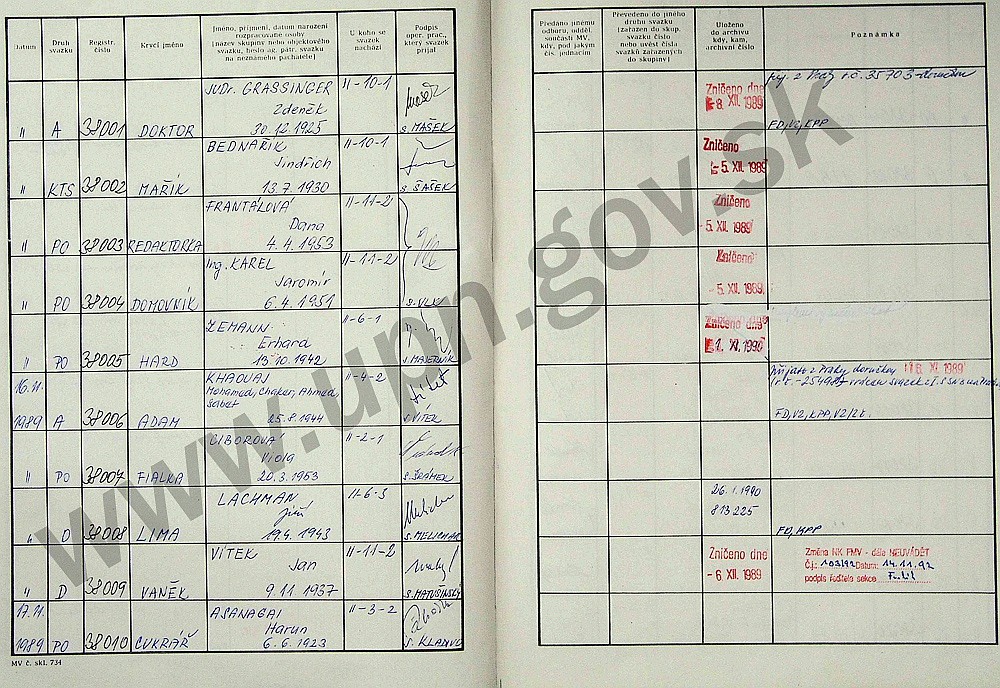 Datum
Druh svazku
Registr. číslo
Krycí jméno
Jméno, příjmení, datum narození
rozpracované osoby
(název skupiny nebo objektového
svazku, heslo ag. pátr. svazku
na neznámého pachatele)
U koho se
svazek
nachází
Podpis
oper. prac.,
který svazek
přijal
Předáno jinému
odboru, odděl.
součásti MV,
kdy, pod jakým
čís. jednacím
Převedeno do jiného
druhu svazku
(zařazen do skup.
svazku číslo
nebo uvést čísla
svazků zařazených
do skupiny)
Uloženo
do archivu
kdy, kam,
archivní číslo
Poznámka
JUDr. GRASSINGER II-10-1
Zdeněk
" A 38001 DOKTOR 30.12.1925 s. MAŠEK
Zničeno dne
8. XII. 1989
FD, V2, KPP
BEDNAŘÍK II-10-1
Jindřich
" KTS 38002 MAŘÍK 13.7.1930 s. ŠAŠEK
Zničeno
5. XII. 1989
FRANTÁLOVÁ II-11-2
Dana
" PO 38003 REDAKTORKA 4.4.1953
Zničeno
5. XII. 1989
Ing. KAREL II-11-2
Jaromír
" PO 38004 DOMOVNÍK 6.4.1951 s. VLK
Zničeno
5. XII. 1989
ZEMANN II-6-1
Erhard
" PO 38005 HARD 13.10.1942 s. MAJERNÍK
Zničeno dne
1990
16.11. KHAOUAJ II-4-2
Mohamed, Chaker, Ahmed,
Sabet
1989 A 38006 ADAM 25.8.1944 s. VÍTEK
XI. 1989
FD, V2, KPP, V2/2t.
CIBOROVÁ II-2-1
Viola
" PO 38007 FIALKA 20.3.1953 s. ŠRÁMEK
LACHMAN II-6-3
Jiří
" O 38008 LIMA 19.4.1943 s. MELICHAR
26.1.1990
813225
FD, KPP
VÍTEK II-11-2
Jan
" D 38009 VANĚK 9.11.1937 s. MATUSINSKÝ
Zničeno dne
-6 XII. 1989
Změna NK FMV - dále NEUVÁDĚT
Č.j.: 103/92 Datum: 14.11.92
podpis ředitele sekce
17.11. ASANAGAI II-3-2
Harun
1989 PO 38010 CUKRÁŘ 6.6.1923 s. KLADIVO
MV č. skl. 734
www.upn.gov.sk